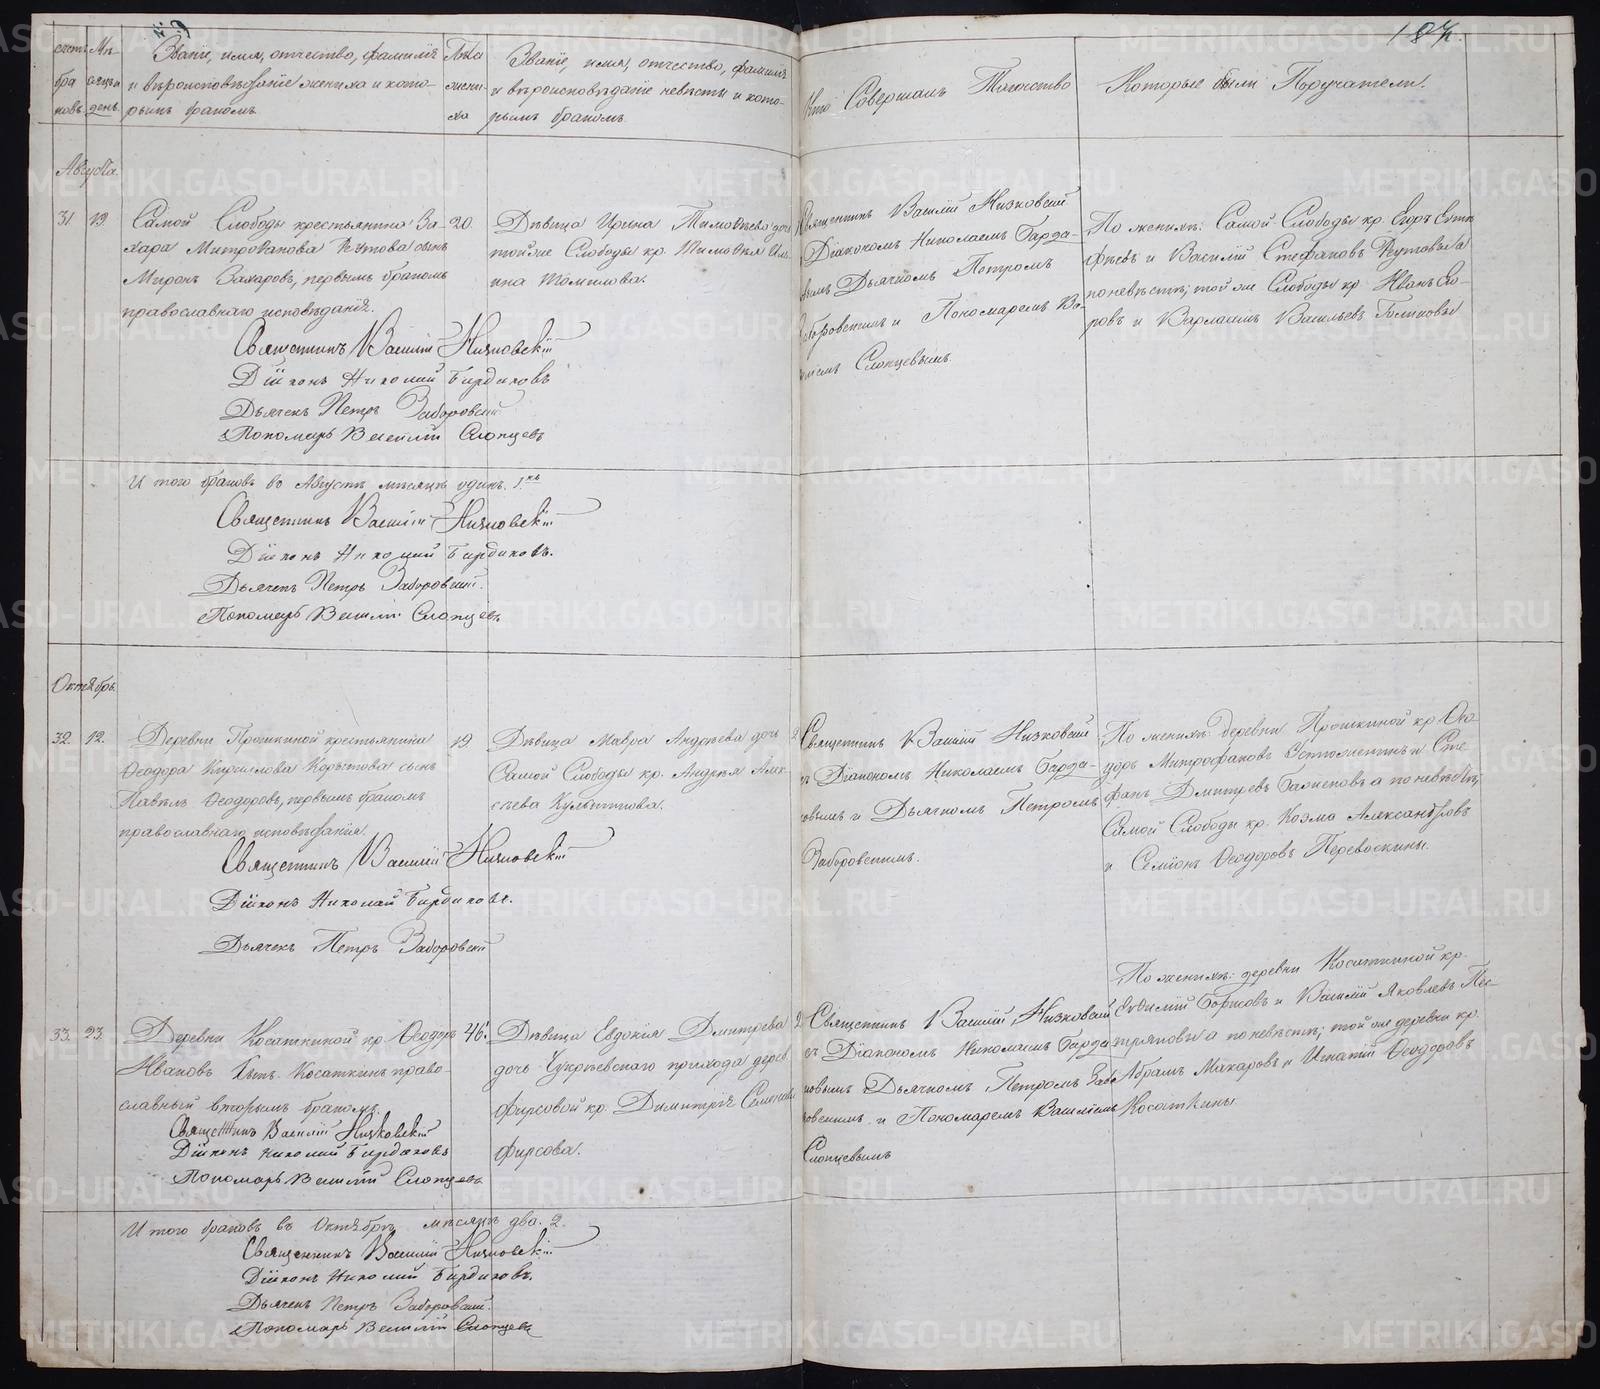 187.
Счетъ браковъ.
Мѣсяцъ и день.
Званіе, имя, отчество, фамилія
и вѣроисповѣданіе жениха и кото-
рымъ бракомъ.
Лѣта жени-
ха
Званіе, имя, отчество, фамилія
и вѣроисповѣданіе невѣсты и кото-
рымъ бракомъ.
Кто Совершалъ Таинство
Которые были Поручатели.
Августа.
31
19.
Самой Слободы крестьянина За-
хара Митрофанова Кутова сынъ
Миронъ Захаровъ, первымъ бракомъ
православнаго исповѣданія.
20.
Дѣвица Ирина Тимофѣева дочь
тойже Слободы кр. Тимофѣя
Томилова.
Священникъ Василій Низковскій
Діакономъ Николаемъ Бирда-
Дьячкомъ Петромъ
и Пономаремъ Ва-
Слопцевымъ.
По женихѣ: Самой Слободы кр. Егоръ
и Василій Стефановъ Кутовы а
по невѣстѣ; той же Слободы кр. Иванъ
и Варлаамъ Васильевъ
Священникъ Василій Низковскій
Діаконъ Николай Бирдюковъ
Дьячекъ Петръ Заборовскій
Пономарь Василій Слопцевъ
И того браковъ во Августѣ мѣсяцѣ одинъ. 1.
Священникъ Василій Низковскій
Діаконъ Николай Бирдюковъ.
Дьячекъ Петръ Заборовскій.
Пономарь Василій Слопцевъ
Октябрь.
32.
12.
Деревни Прошкиной крестьянина
Ѳеодора Кириллова Корытова сынъ
Павелъ Ѳеодоровъ, первымъ бракомъ
православнаго исповѣданія.
19
Дѣвица Мавра Андреева дочь
Самой Слободы кр. Андрея Алек-
сѣева
Священникъ Василій Низковскій
съ Діакономъ Николаемъ Бирдю-
ковымъ и Дьячкомъ Петромъ
Заборовскимъ.
По женихѣ: деревни Прошкиной кр. Ѳео-
доръ Митрофановъ и Сте-
фанъ Дмитревъ а по невѣстѣ;
Самой Слободы кр. Козма Александровъ
и Семіонъ Ѳеодоровъ Перевоскины.
Священникъ Василій Низковскій
Діаконъ Николай Бирдюковъ.
Дьячекъ Петръ Заборовскій
33.
23.
Деревни Косаткиной кр. Ѳеодоръ
Ивановъ Косаткинъ право-
славный вторымъ бракомъ.
46.
Дѣвица Евдокія Дмитрева
дочь Чукрѣевскаго прихода дерев.
Фирсовой кр. Димитрія
Фирсова.
Священникъ Василій Низковскій
съ Діакономъ Николаемъ Бирдю-
ковымъ Дьячкомъ Петромъ Забо-
ровскимъ и Пономаремъ Василіемъ
Слопцевымъ
По женихѣ: деревни Косаткиной кр.
Борисовъ и Василій Яковлевъ Пес-
а по невѣстѣ; той же деревни кр.
Абрамъ Макаровъ и Игнатій Ѳеодоровъ
Косаткины.
Священникъ Василій Низковскій
Діаконъ Николай Бирдюковъ
Пономарь Василій Слопцевъ
И того браковъ въ Октябрѣ мѣсяцѣ два. 2.
Священникъ Василій Низковскій
Діаконъ Николай Бирдюковъ.
Дьячекъ Петръ Заборовскій.
Пономарь Василій Слопцевъ
METRIKI.GASO-URAL.RU